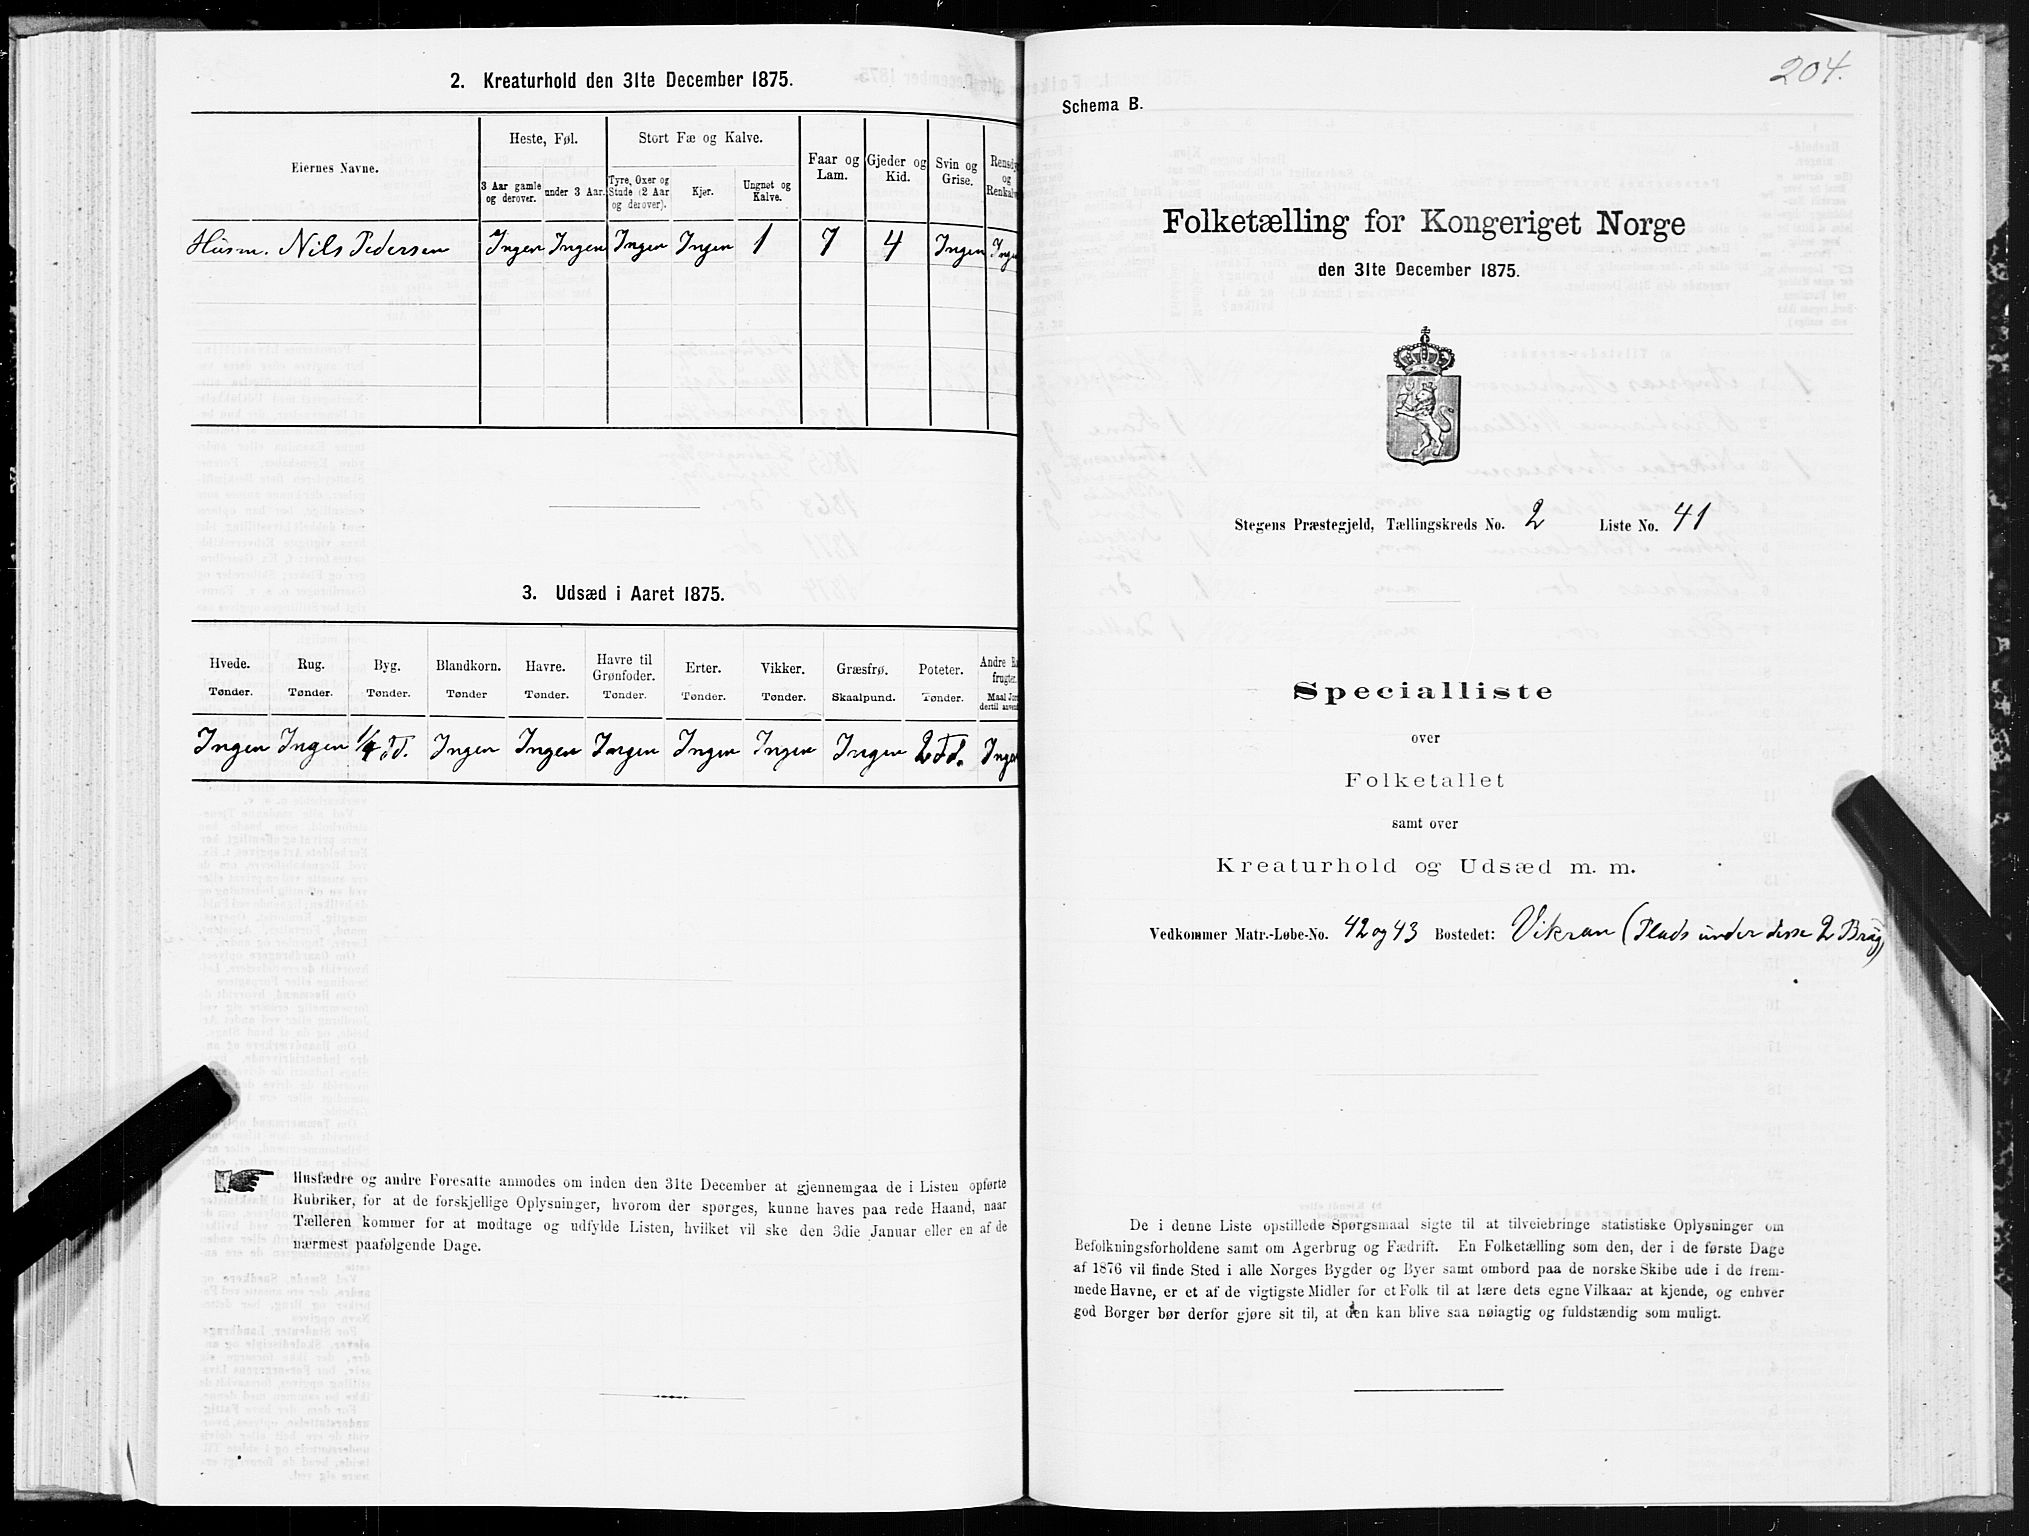 2. Kreaturhold den 31te December 1875.
Eiernes Navne.
Heste, Føl.
Stort Fæ og Kalve.
Faar og Lam.
Gjeder og Kid.
Svin og Grise.
og
3 Aar gamle og derover.
under 3 Aar.
Tyre, Oxer og Stude (2 Aar og derover).
Kjør.
Ungnøt og Kalve.
Husm. Nils Pedersen Ingen Ingen Ingen Ingen 1 7 4 Ingen
3. Udsæd i Aaret 1875.
Hvede. Rug. Byg. Blandkorn. Havre. Havre til Grønfoder. Erter. Vikker. Græsfrø. Poteter. Andre
Tønder. Tønder. Tønder. Tønder Tønder. Tønder. Tønder. Tønder. Skaalpund. Tønder. Maal
Ingen Ingen 1/4 Td. Ingen Ingen Ingen Ingen Ingen Ingen 2 Td.
Husfædre og andre Foresatte anmodes om inden den 31te December at gjennemgaa de i Listen opførte
Rubriker, for at de forskjellige Oplysninger, hvorom der spørges, kunne haves paa rede Haand, naar
Tælleren kommer for at modtage og udfylde Listen, hvilket vil ske den 3die Januar eller en af de
nærmest paafølgende Dage.
204.
Schema B.
Folketælling for Kongeriget Norge
den 31te December 1875.
Stegens Præstegjeld, Tællingskreds No. 2 Liste No. 41
Specialliste
over
Folketallet
samt over
Kreaturhold og Udsæd m. m.
Vedkommer Matr.-Løbe-No. 42 og 43 Bostedet: Vikran (Plads under disse 2 Brug)
De i denne Liste opstillede Spørgsmaal sigte til at tilveiebringe statistiske Oplysninger om
Befolkningsforholdene samt om Agerbrug og Fædrift. En Folketælling som den, der i de første Dage
af 1876 vil finde Sted i alle Norges Bygder og Byer samt ombord paa de norske Skibe ude i de frem-
mede Havne, er et af de vigtigste Midler for et Folk til at lære dets egne Vilkaar at kjende, og enhver
god Borger bør derfor gjøre sit til, at den kan blive saa nøiagtig og fuldstændig som muligt.